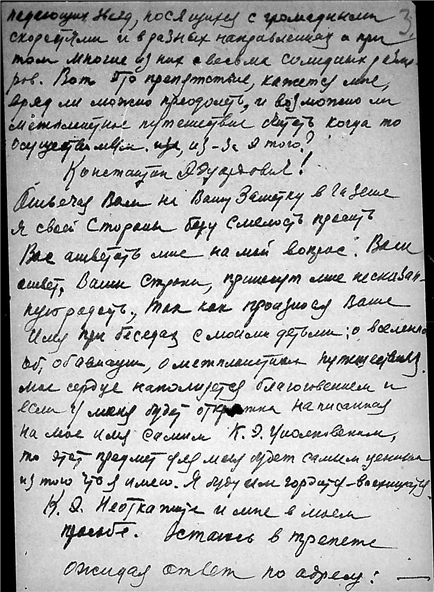 падающих звезд, носящихся с громадными 3
скоростями и в разных направлениях а при
том многие из них и весьма солидных разме-
ров. Вот это препятствие, кажется мне,
вряд ли можно преодолеть, и возможно ли
путешествие считать когда то
осуществимым. из-за этого?
Константин Эдуардович!
Отвечая Вам на Вашу Заметку в Газете
я своей Стороны беру Смелость просить
Вас ответить мне на мой вопрос. Ваш
ответ, Ваши Строки, принесут мне несказан-
ную радость, так как произнося Ваше
Имя при беседах с моими детьми; о вселен
ной, о путешествиях
мое сердце наполняется благоговением и
если у меня будет открытка написанная
на мое имя самим К. Э. Циолковским,
то этот предмет для меня будет самым ценным
из того что я имею. Я буду им гордится - восхищатся
К. Э. Неоткажите и мне в моей
просьбе. Остаюсь в трепете
ожидая ответ по адресу: —